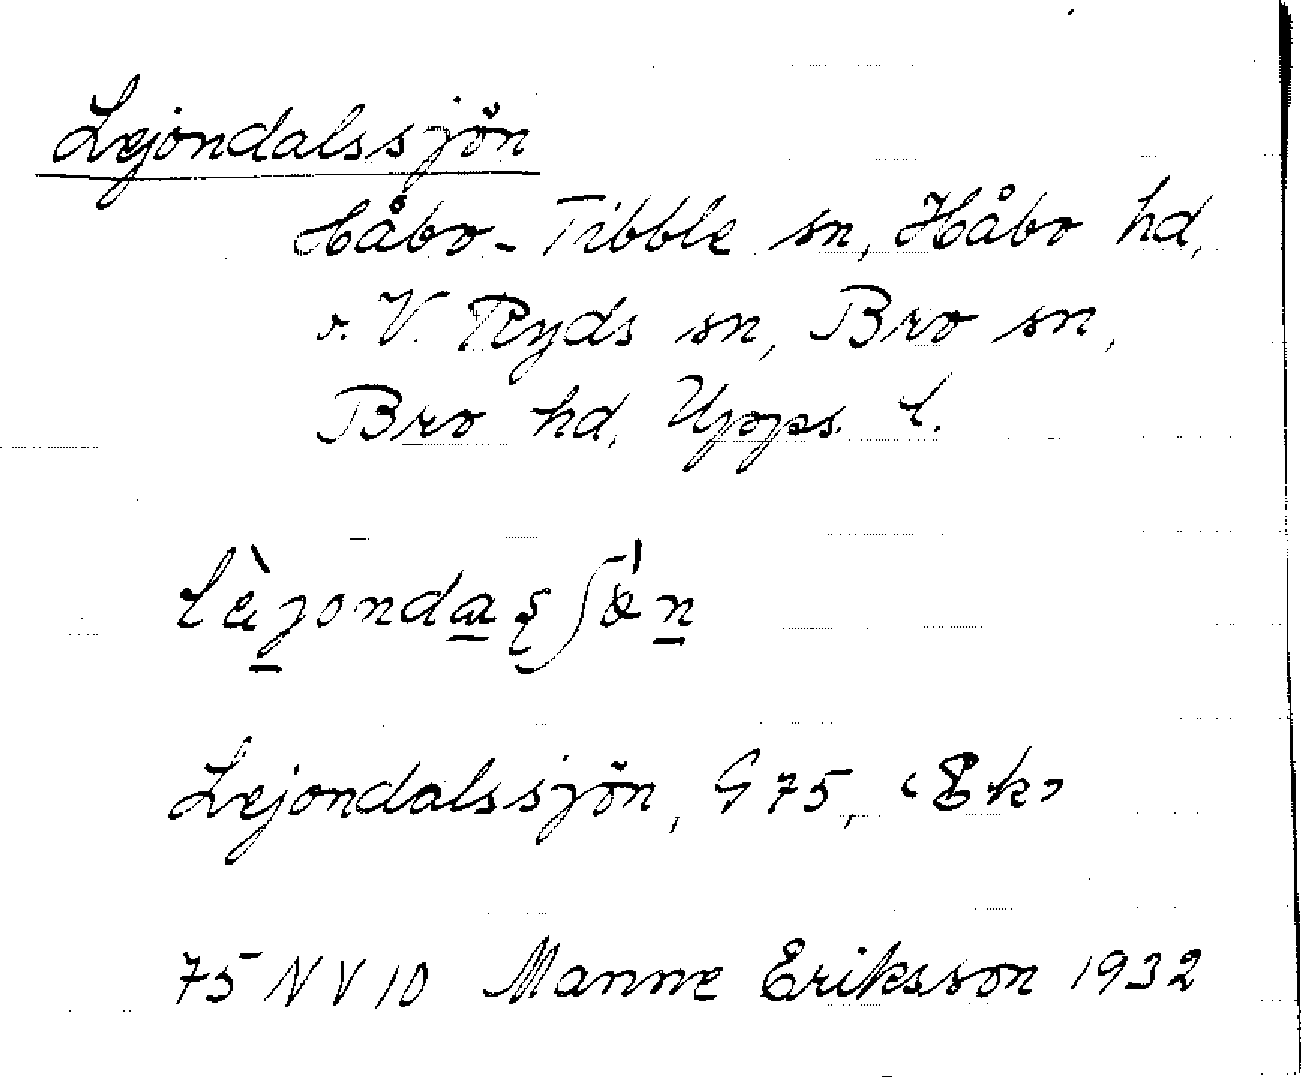 Lejondalssjön
Håbo-Tibble sn, Håbo hd,
o. V. Ryds sn, Bro sn,
Bro hd, Upps. l.
Lejondalssjön, G 75, <Ek>
75 NV 10 Manne Eriksson 1932